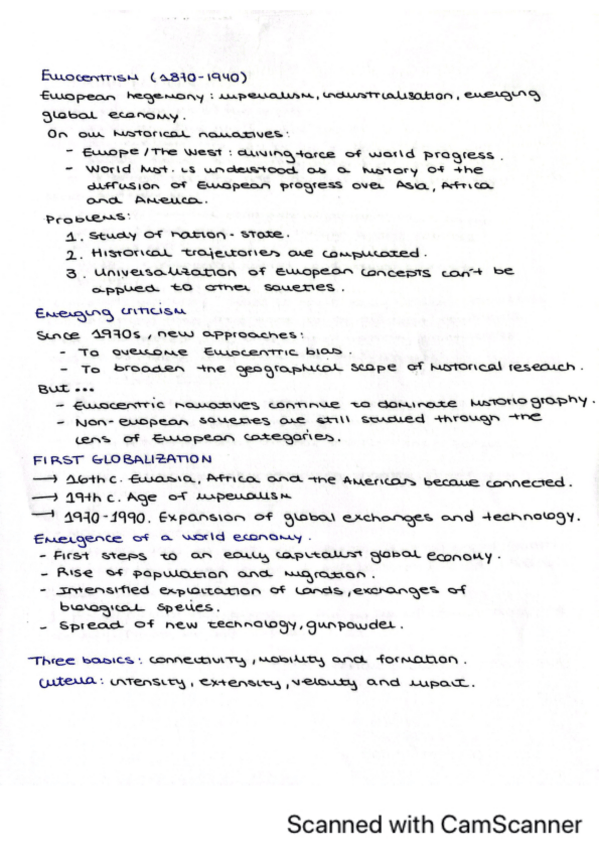 Eurocentrism (1870-1940)
European hegemony: imperialism, industrialisation, emerging
global economy.
On our historical narratives:
- Europe / The West: driving force of world progress.
- World hist. is understood as a history of the
diffusion of European progress over Asia, Africa
and America.
Problems:
1. Study of nation-state.
2. Historical trajectories are complicated.
3. Universalization of European concepts can't be
applied to other societies.
Emerging criticism
Since 1970s, new approaches:
- To overcome Eurocentric bias.
- To broaden the geographical scope of historical research.
But...
- Eurocentric narratives continue to dominate historiography.
- Non-european societies are still studied through the
lens of European categories.
FIRST GLOBALIZATION
→ 16th c. Eurasia, Africa and the Americas became connected.
→ 19th c. Age of imperialism
→ 1970-1990. Expansion of global exchanges and technology.
Emergence of a world economy.
- First steps to an early capitalist global economy.
- Rise of population and migration.
- Intensified exploitation of lands, exchanges of
biological species.
- Spread of new technology, gunpowder.
Three basics: connectivity, mobility and formation.
Criteria: intensity, extensity, velocity and impact.
Scanned with CamScanner